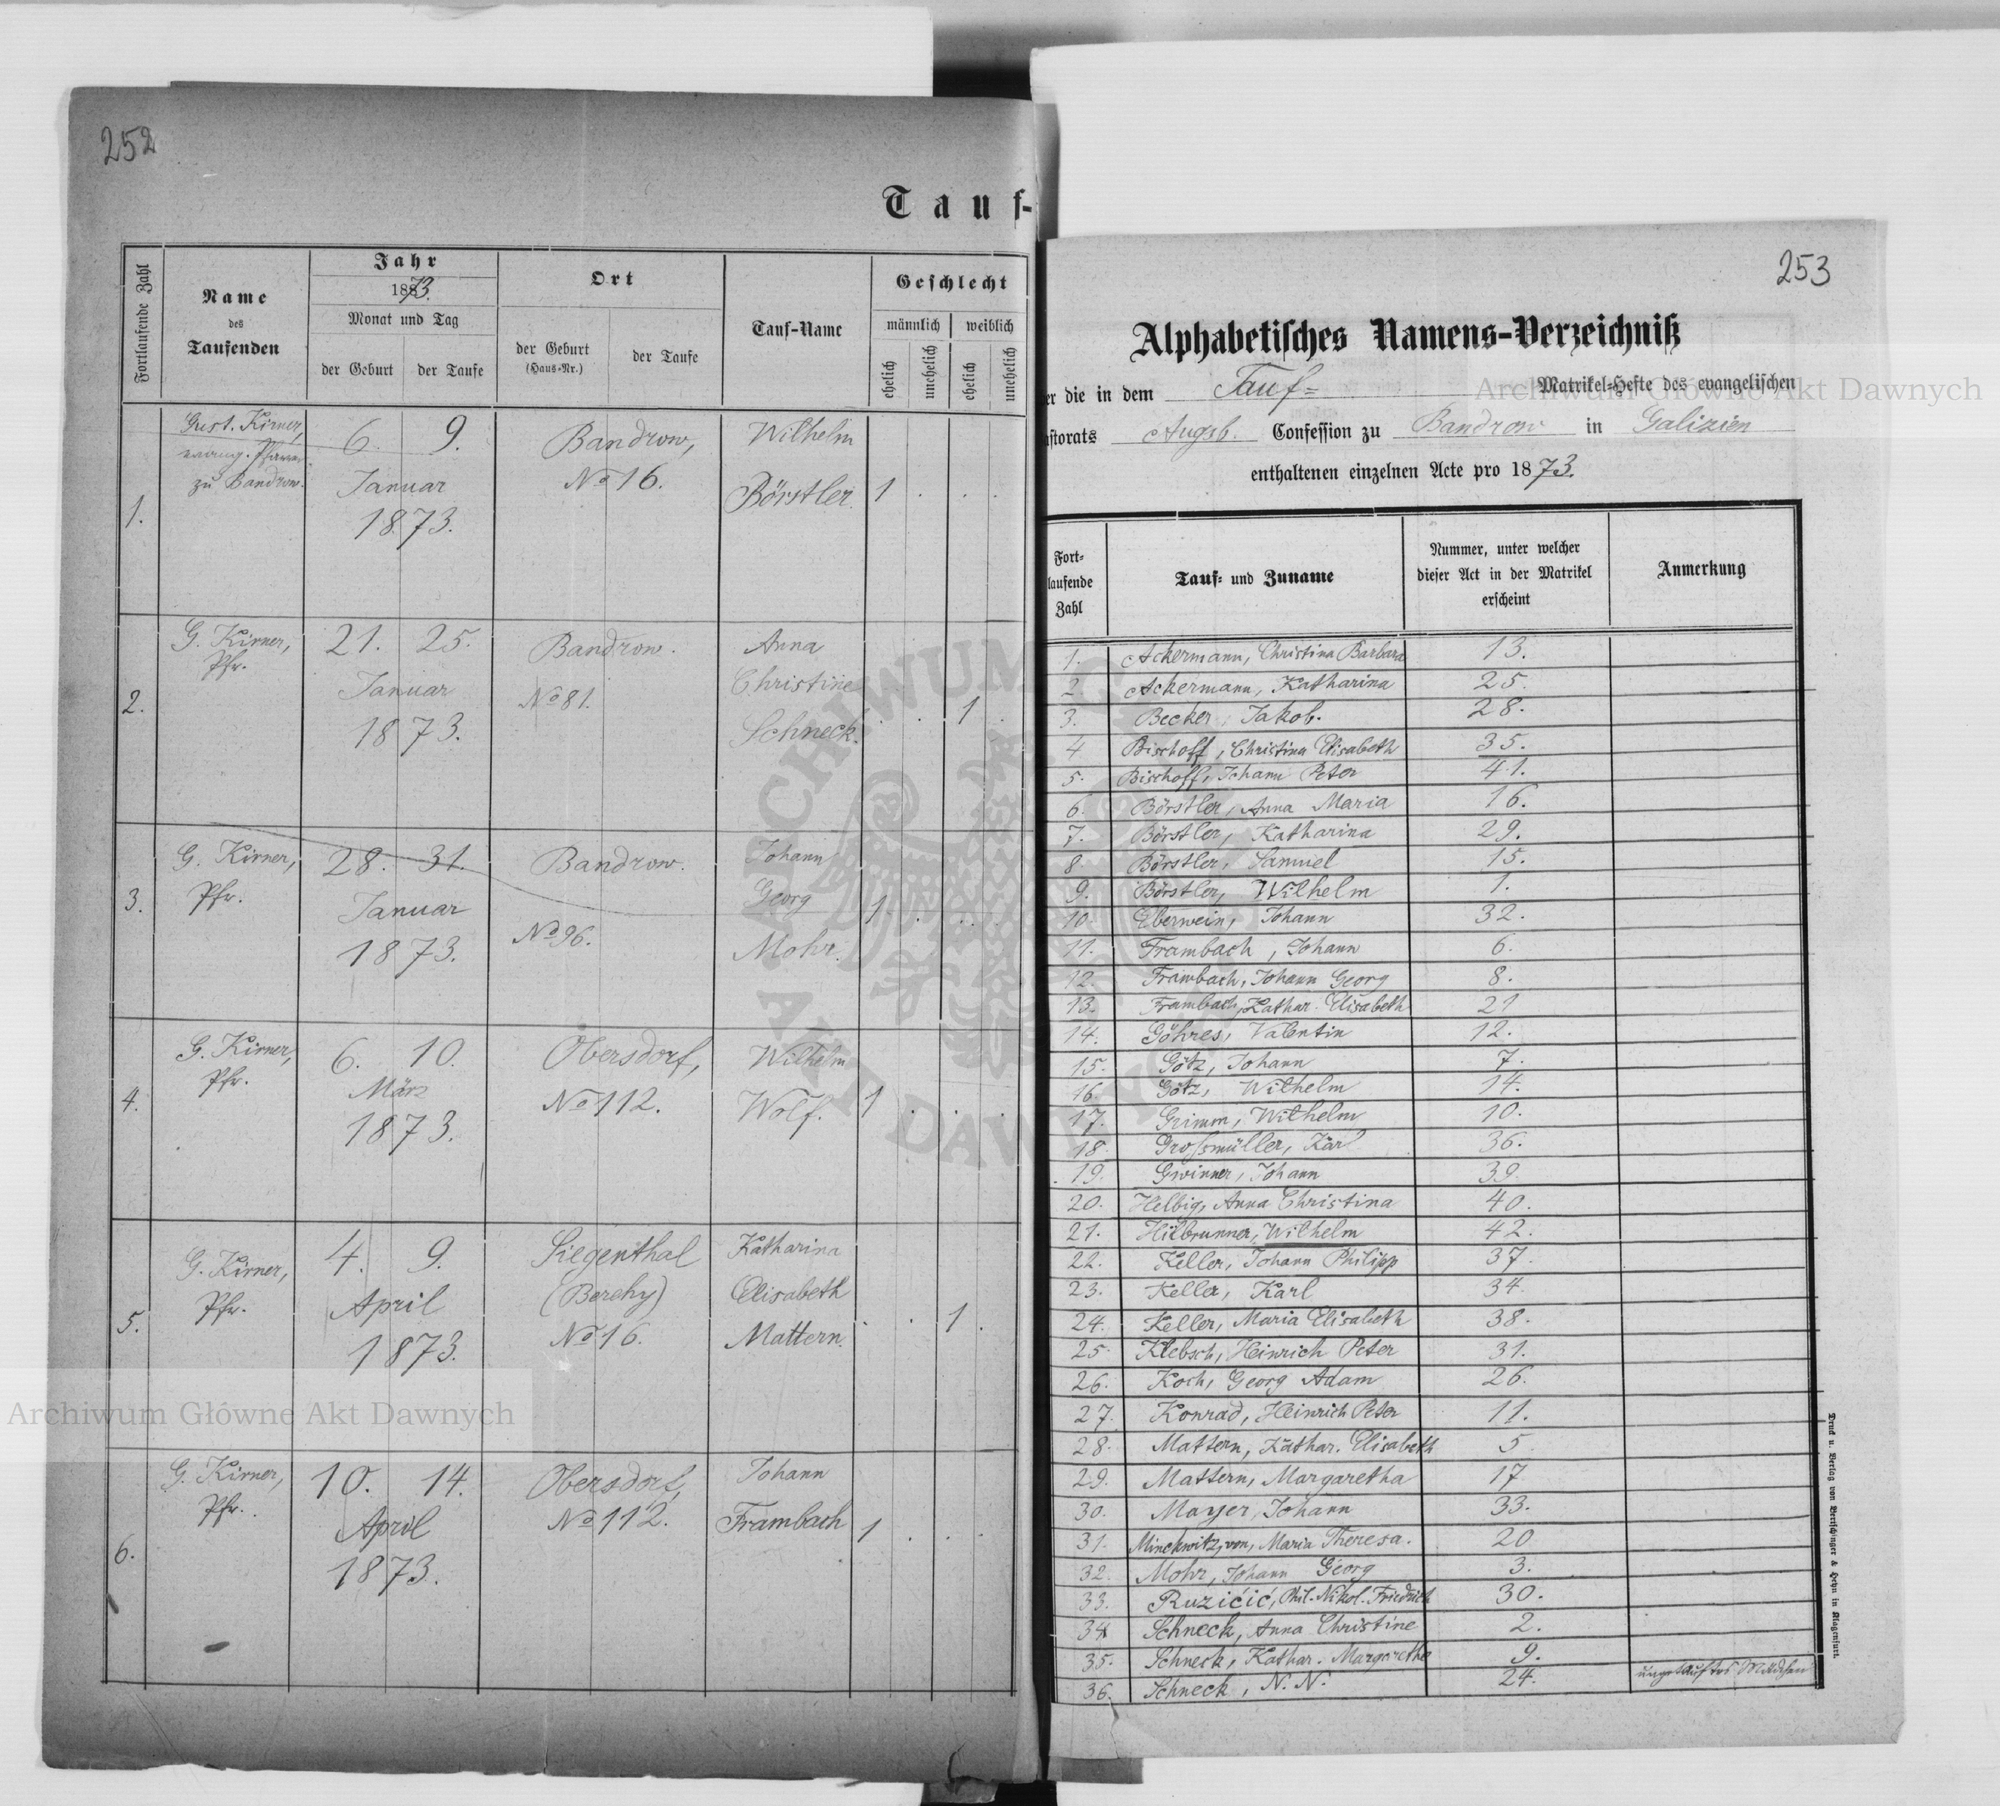 252
Tauf-
Fortlaufende Zahl
Name
des
Taufenden
Jahr
1873.
Monat und Tag
der Geburt
der Taufe
Ort
der Geburt
(Haus-Nr.)
der Taufe
Tauf-Name
Geschlecht
männlich
weiblich
ehelich
unehelich
ehelich
unehelich
1.
Gust. Kirner,
evang. Pfarrer
zu Bandrow.
6. 9.
Januar
1873.
Bandrow,
No 16.
Wilhelm
Börstler.
1 . . .
2.
G. Kirner,
Pfr.
21. 25.
Januar
1873.
Bandrow.
No 81.
Anna
Christine
Schneck.
. . 1 .
3.
G. Kirner,
Pfr.
28. 31.
Januar
1873.
Bandrow.
No 96.
Johann
Georg
Mohr.
1 . . .
4.
G. Kirner,
Pfr.
6. 10.
März
1873.
Obersdorf,
No 112.
Wilhelm
Wolf.
1 . . .
5.
G. Kirner,
Pfr.
4. 9.
April
1873.
Siegenthal
(Berehy)
No 16.
Katharina
Elisabeth
Mattern.
. . 1 .
6.
G. Kirner,
Pfr.
10. 14.
April
1873.
Obersdorf,
No 112.
Johann
Frambach
1 . . .
253
Alphabetisches Namens-Verzeichniß
er die in dem Tauf= Matrikel-Hefte des evangelischen
astorats Augsb. Confession zu Bandrow in Galizien
enthaltenen einzelnen Acte pro 1873.
Fort-
laufende
Zahl
Tauf- und Zuname
Nummer, unter welcher
dieser Act in der Matrikel
erscheint
Anmerkung
1. Ackermann, Christina Barbara 13.
2. Ackermann, Katharina 25.
3. Becker, Jakob. 28.
4 Bischoff, Christina Elisabeth 35.
5. Bischoff, Johann Peter 41.
6. Börstler, Anna Maria 16.
7. Börstler, Katharina 29.
8 Börstler, Samuel 15.
9. Börstler, Wilhelm 1.
10 Eberwein, Johann 32.
11. Frambach, Johann 6.
12. Frambach, Johann Georg 8.
13. Frambach, Kathar. Elisabeth 21
14. Göhres, Valentin 12.
15. Götz, Johann 7.
16. Götz, Wilhelm 14.
17. Grimm, Wilhelm 10.
18. Großmüller, Karl 36.
19. Gwinner, Johann 39.
20. Helbig, Anna Christina 40.
21. Hilbrunner, Wilhelm 42.
22. Keller, Johann Philipp 37.
23. Keller, Karl 34.
24. Keller, Maria Elisabeth 38.
25. Klebsch, Heinrich Peter 31.
26. Koch, Georg Adam 26.
27. Konrad, Heinrich Peter 11.
28. Mattern, Kathar. Elisabeth 5.
29. Mattern, Margaretha 17.
30. Mayer, Johann 33.
31. Minckwitz, von, Maria Theresa. 20
32. Mohr, Johann Georg 3.
33. Ruzićić, Phil. Nikol. Friedrich 30.
34 Schneck, Anna Christine 2.
35. Schneck, Kathar. Margarethe 9.
36. Schneck, N. N. 24. ungetauftes Mädchen
Druck u. Verlag von Bertschinger & Heyn in Klagenfurt.
Archiwum Główne Akt Dawnych
Archiwum Główne Akt Dawnych